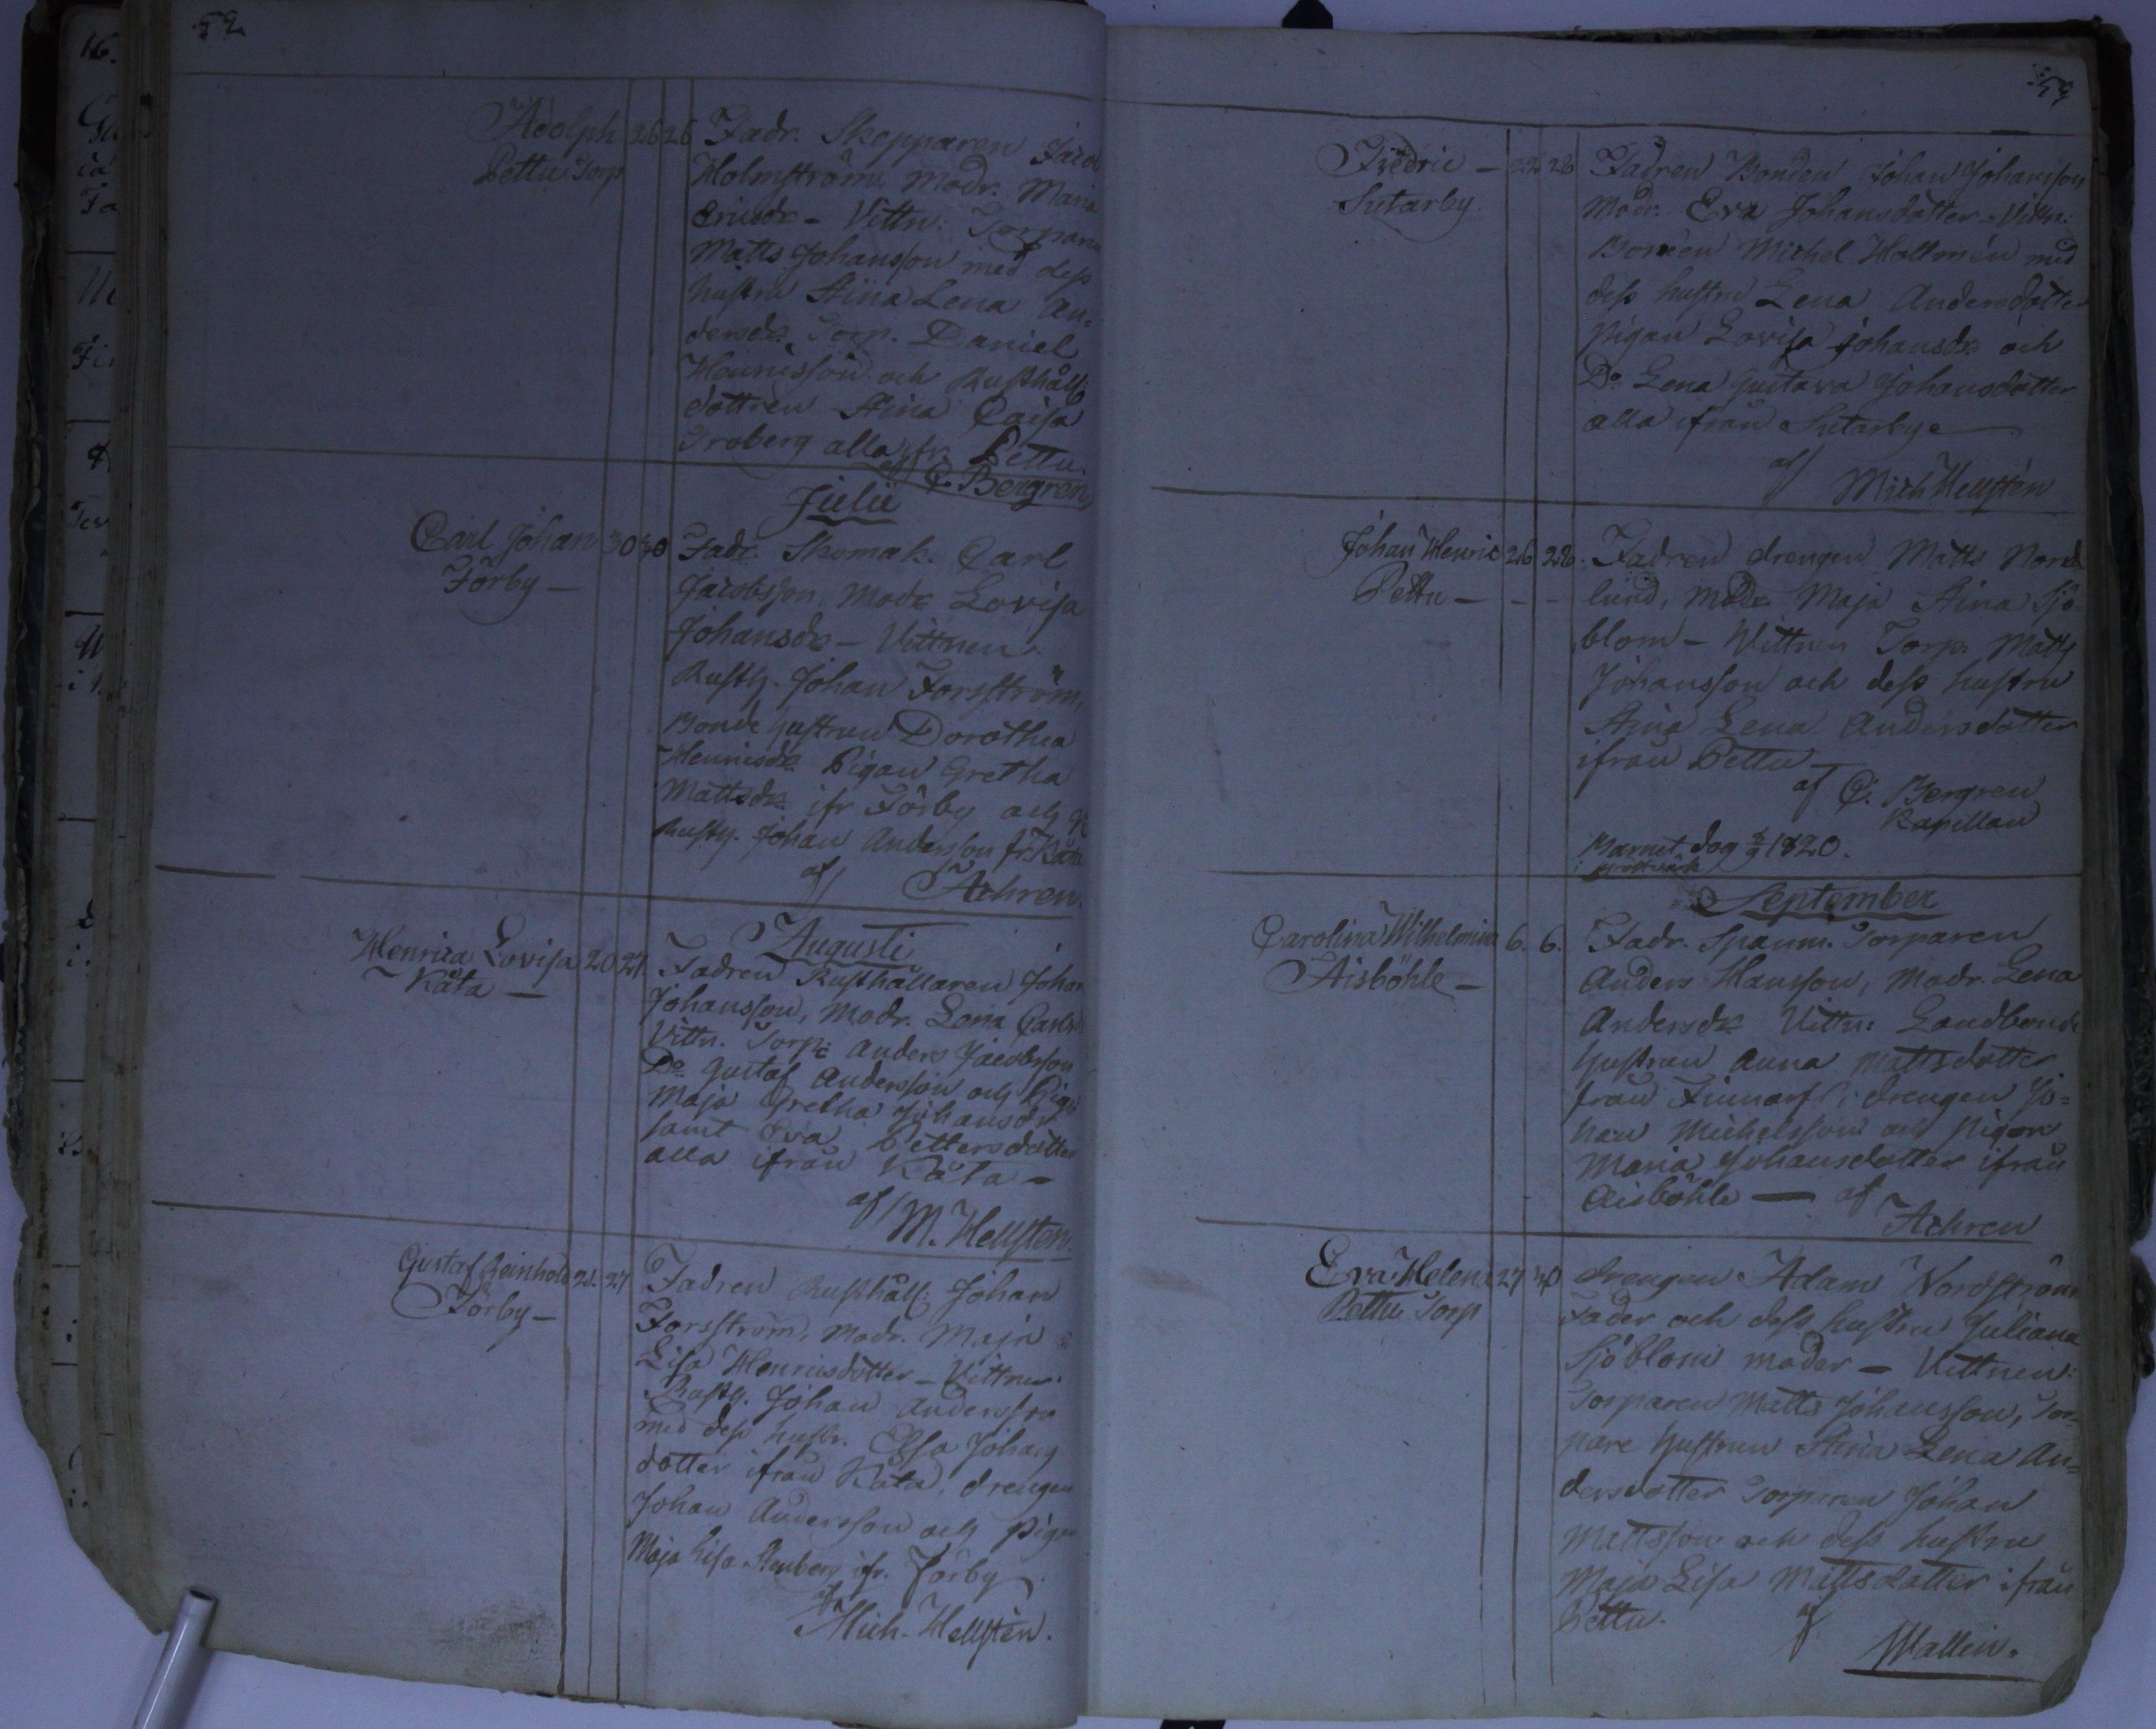 52
Adolph 26 26 Fadr. Skepparen Jacob
Pettu Torp Holmström, Modr. Maria
Ericsdr - Vittn. Torparen
Matts Johansson med dess
hustru Stina Lena An-
dersdr. Torp. Daniel
Henricsson och Rusthålls
dottren Stina Caisa
Froberg alla fr. Pettu.
af C. Bergren
Julii
Carl Johan 30 30 Fadr. Skomak. Carl
Förby - Jacobsson, Modr Lovisa
Johansdr - Vittnen
Rusth. Johan Forsström,
Bonde hustrun Dorothea
Henricsdr. Pigan Gretha
Mattsdr. ifr Förby och
Rusth. Johan Andersson fr. Kåta
af Achren.
Augusti
Henrica Lovisa 20 27. Fadren Rusthållaren Johan
Kåta - Johansson, Modr. Lena Carlsd
Vittn. Torp: Anders Jacobsson
Do Gustaf Andersson och Pig
Maja Gretha Johansdr
samt Eva Pettersdotter
alla ifrån Kåta -
af M. Hellsten.
Gustaf Reinhold 21. 27 Fadren Rusthåll: Johan
Förby - Forsström, Modr. Maja
Lisa Henricsdotter - Vittnen
Rusth. Johan Andersson
med dess hustr. Johans
dotter ifrån Kåta, drengen
Johan Andersson och Pigan
Maja Lisa Stenberg ifr. Förby
af
Mich. Hellsten.
53
Fredric - 22 28 Fadren Bonden Johan Johansson
Sutarby Modr. Eva Johansdotter - Vittn:
Bonden Michel Hallmén med
dess hustru Lena Andersdotter
Pigan Lovisa Johansdr och
Do Lena Gustava Johansdotter
alla ifrån Sutarby
af Mich Hellstén
Johan Henric 26 28. Fadren drengen Matts Nord
Pettu - - - lund, Modr Maja Stina Sjö-
blom - Vittnen Torp. Matts
Johansson och dess hustru
Stina Lena Andersdotter
ifrån Pettu
af C. Bergren
Kapellan
Barnet dog 1820.
September
Carolina Wilhelmina 6. 6. Fadr. Spanm. Torparen
Aisböhle - Anders Hansson, Modr. Lena
Andersdr Vittn: Landbonde
hustrun Anna Mattsdotter
från Finnarf, drengen Jo=
han Michelsson och Pigan
Maria Johansdotter ifrån
Aisböhle - af
Achren
Eva Helena 27 30 drengen Adam Nordström
Pettu Torp Fader och dess hustru Juliana
Sjöblom moder - Vittnen:
Torparen Matts Johansson, Tor-
pare hustrun Stina Lena An=
dersdotter Torparen Johan
Mattsson och dess hustru
Maja Lisa Mattsdotter ifrån
Pettu. af
Wallin.